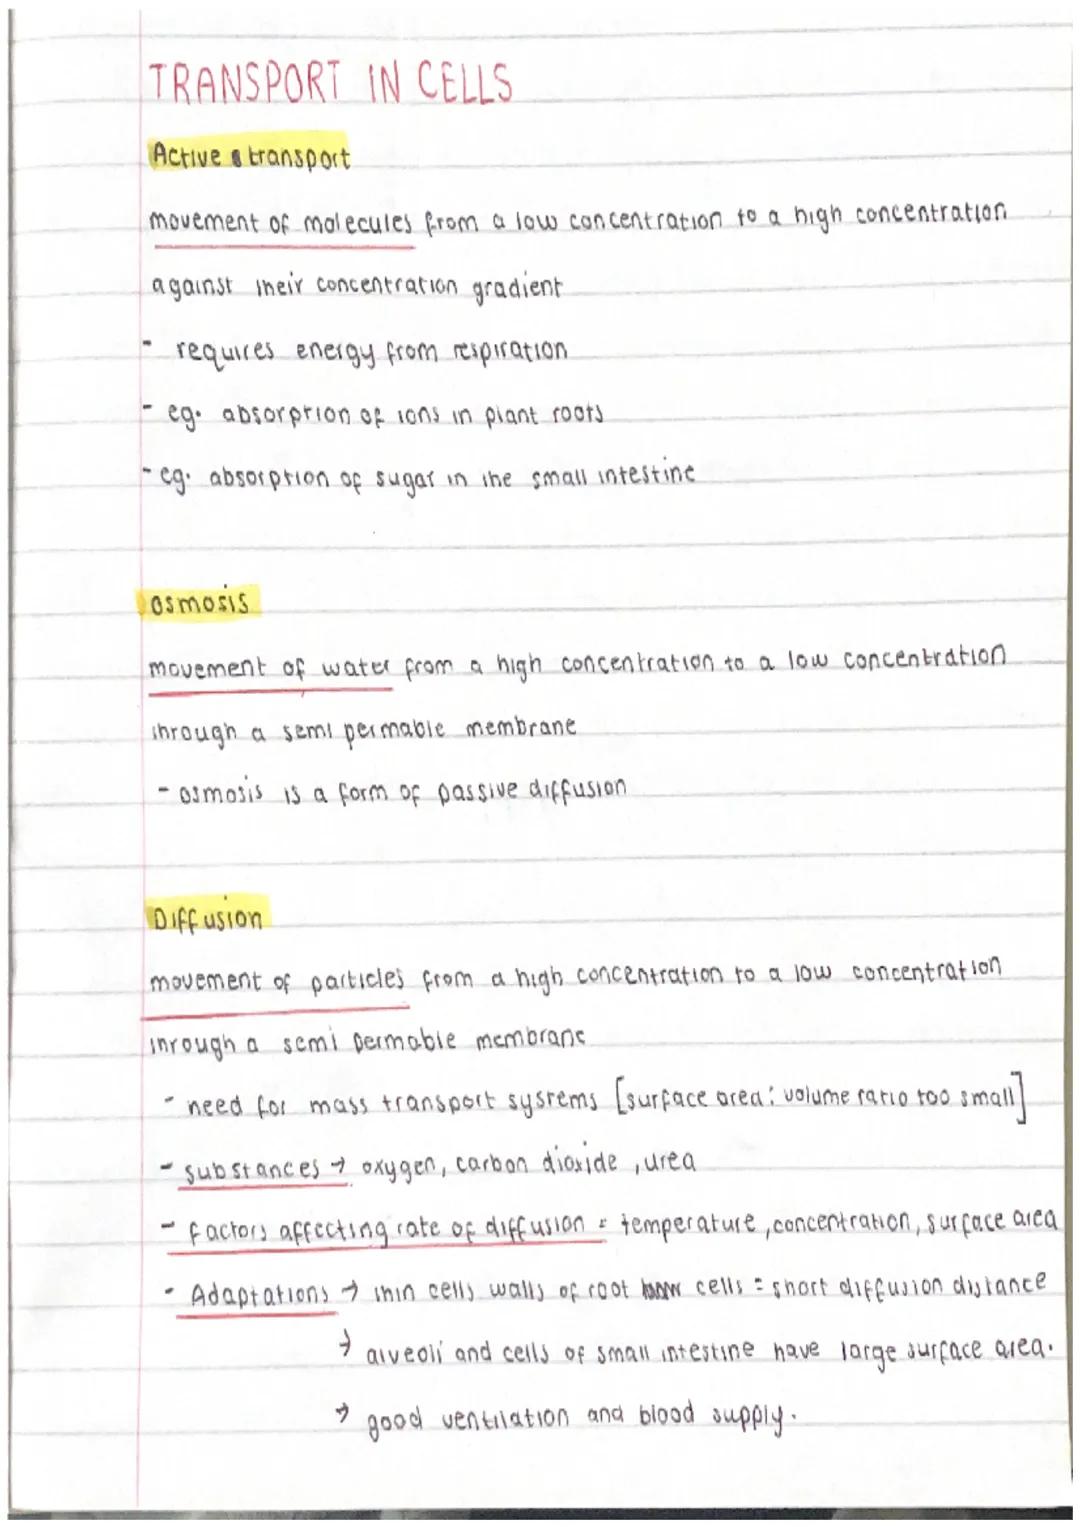 TRANSPORT IN CELLS
Active transport
movement of molecules from a low concentration to a high concentration
against their concentration gradient
- requires energy from respiration
- eg. absorption of ions in plant roots
- eg. absorption of sugar in the small intestine
osmosis
movement of water from a high concentration to a low concentration
through a semi permable membrane
- osmosis is a form of passive diffusion
Diffusion
movement of particles from a high concentration to a low concentration
through a semi permable membrane
- need for mass transport systems [surface area : volume ratio too small]
- substances → oxygen, carbon dioxide, urea
- factors affecting rate of diffusion = temperature, concentration, surface area
- Adaptations → thin cells walls of root cells = short diffusion distance
→ alveoli and cells of small intestine have large surface area.
→ good ventilation and blood supply.